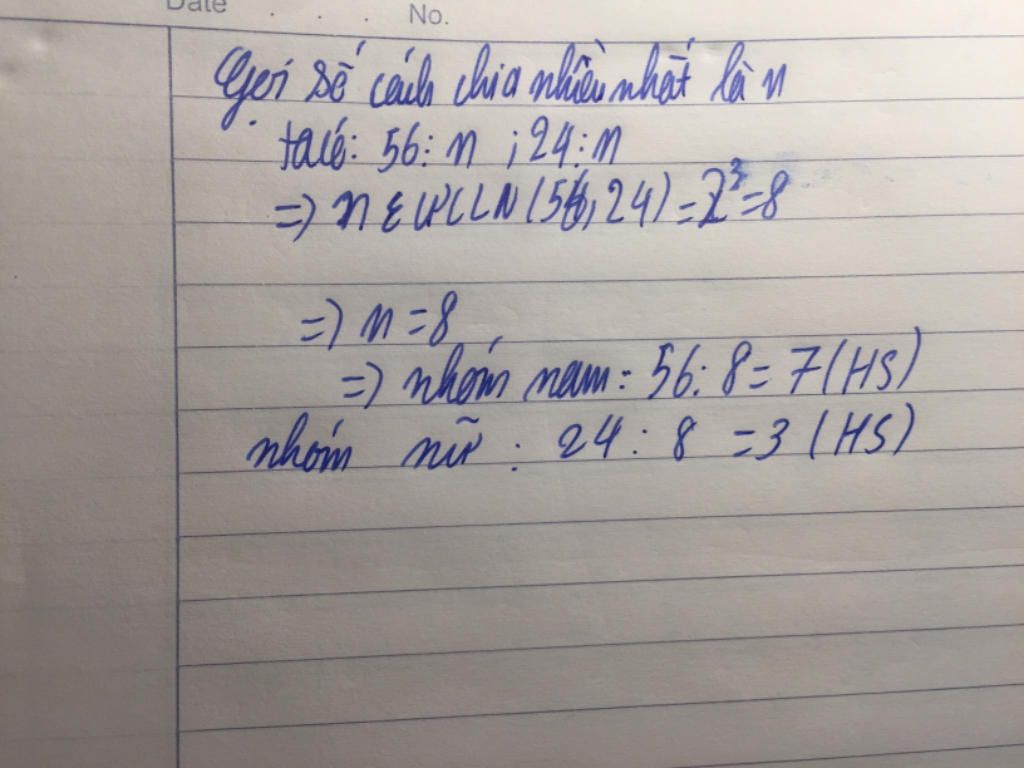 Date . . . . No.
Gọi số cách chia nhiều nhất là n
ta có: 56 : n ; 24 : n
=> n ε ƯCLN (56, 24) = 2³ = 8
=> n = 8
=> nhóm nam: 56 : 8 = 7 (HS)
nhóm nữ : 24 : 8 = 3 (HS)